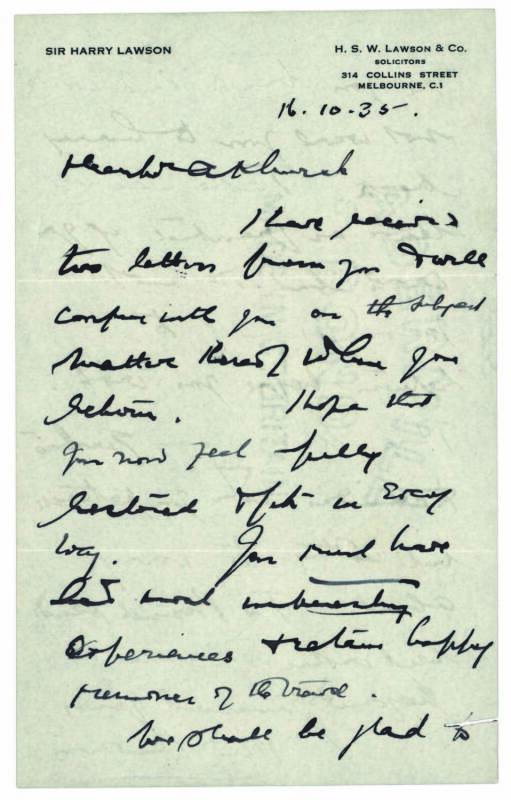 SIR HARRY LAWSON
H. S. W. LAWSON & CO.
SOLICITORS
314 COLLINS STREET
MELBOURNE, C.1
16.10.35.
I have received
two letters from you & will
confer with you on the subject
matter thereof when you
return. I hope that
you now feel fully
restored & fit in every
way. You must have
had most interesting
experiences & retain happy
memories of the travel.
We shall be glad to